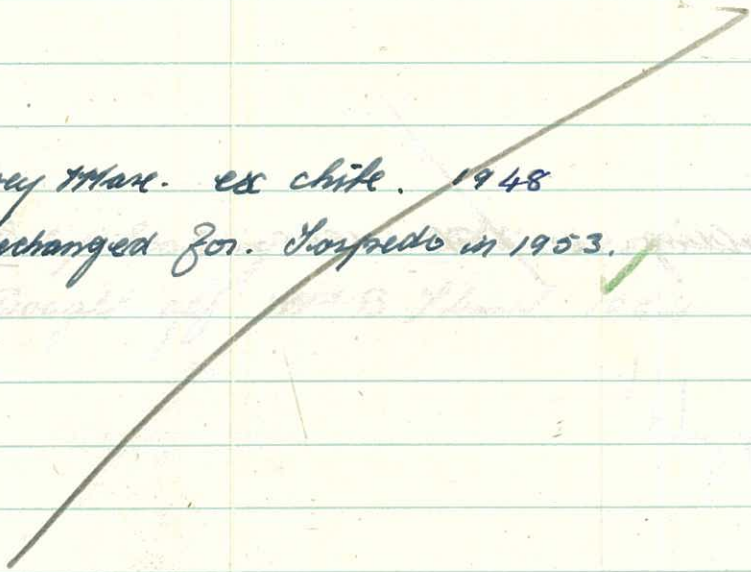 ey Mare. ex chile. 1948
echanged for. Torpedo in 1953.